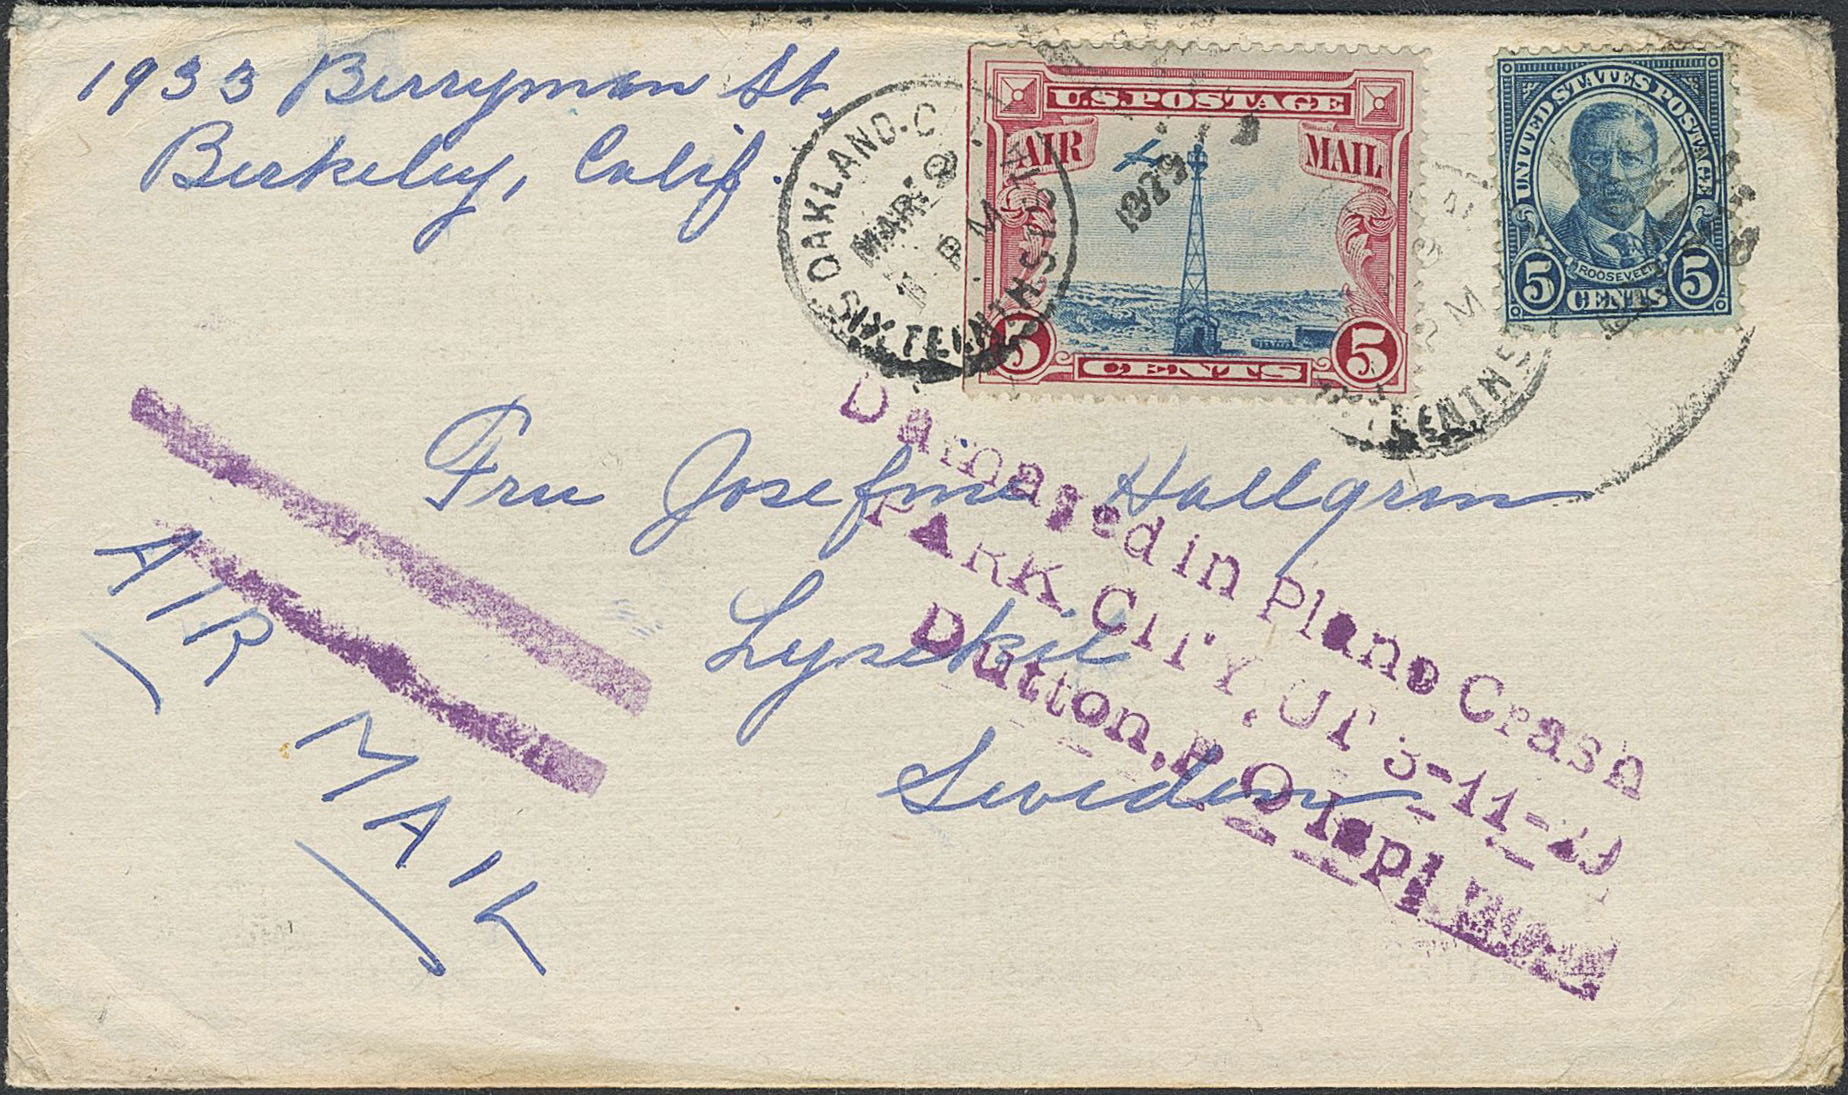 1933 Berryman St.
Berkeley, Calif.
OAKLAND.C
MAR 9
PM
1929
SIXTEENTH ST. STA.
U.S. POSTAGE
AIR MAIL
5 CENTS 5
UNITED STATES POSTAGE
ROOSEVELT
5 CENTS 5
Fru Josefine Hallgren
Lysekil
Sweden
AIR MAIL
Damaged in Plane Crash
PARK CITY, UT 3-11-29
Dutton, P O Insp